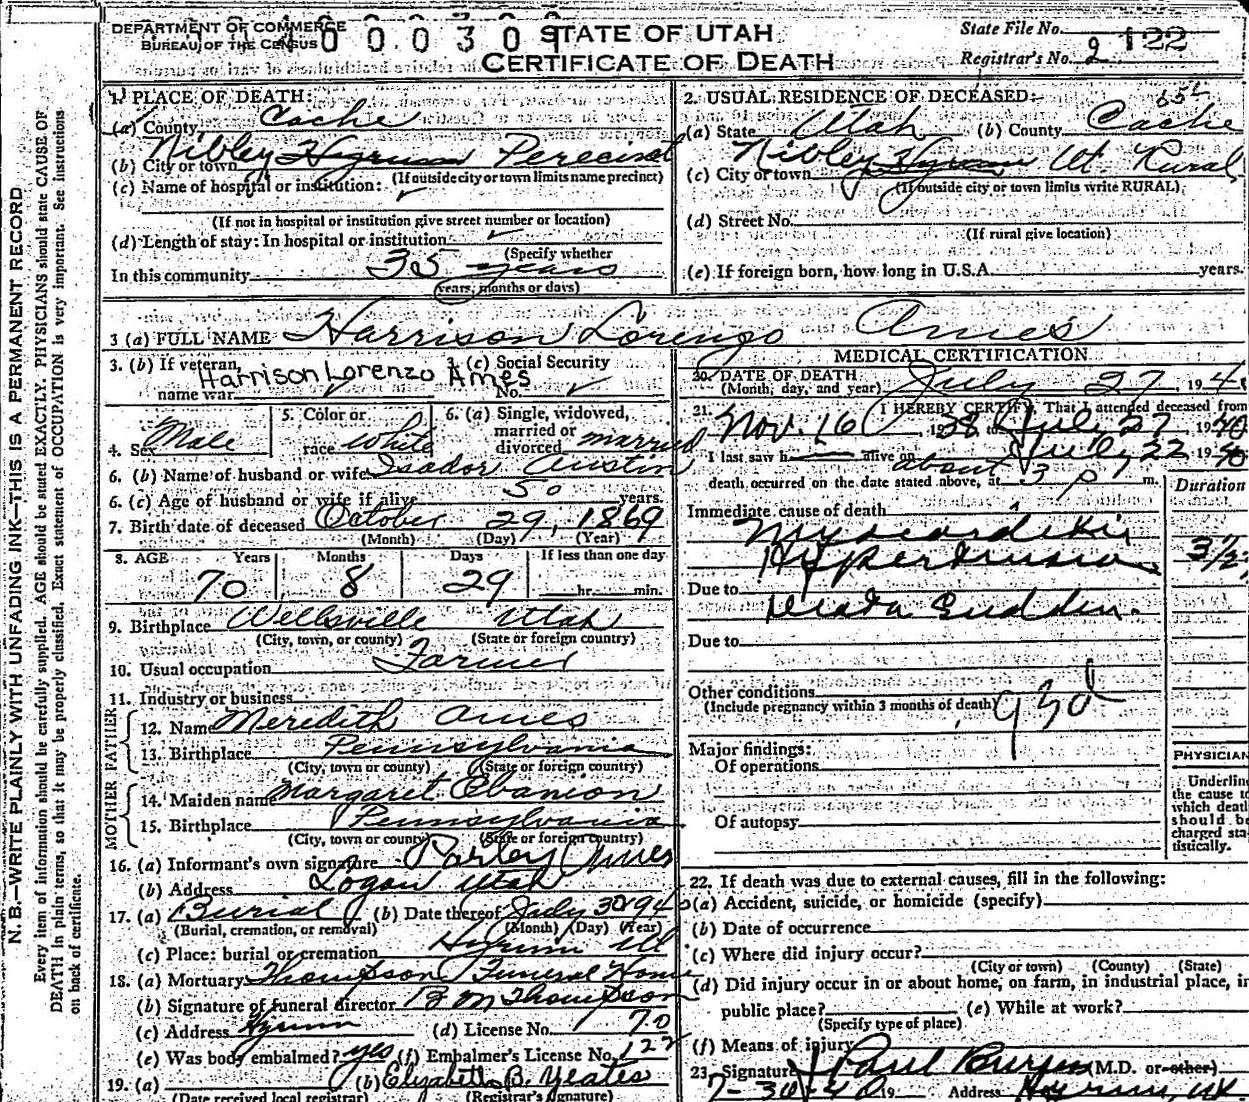 DEPARTMENT OF COMMERCE
BUREAU OF THE CENSUS
STATE OF UTAH
CERTIFICATE OF DEATH
State File No. 122
Registrar's No. 2
1. PLACE OF DEATH:
(a) County Cache
(b) City or town Nibley Hyrum Perecinct
(If outside city or town limits name precinct)
(c) Name of hospital or institution:
(If not in hospital or institution give street number or location)
(d) Length of stay: In hospital or institution
(Specify whether
In this community 35 years
years, months or days)
2. USUAL RESIDENCE OF DECEASED:
(a) State Utah (b) County Cache
(c) City or town Nibley Hyrum Ut. Rural
(If outside city or town limits write RURAL)
(d) Street No.
(If rural give location)
(e) If foreign born, how long in U.S.A. years.
3 (a) FULL NAME Harrison Lorenzo Ames
3. (b) If veteran, name war
3. (c) Social Security No.
Harrison Lorenzo Ames
4. Sex Male
5. Color or race White
6. (a) Single, widowed, married or divorced married
6. (b) Name of husband or wife Isador Austin
6. (c) Age of husband or wife if alive 50 years.
7. Birth date of deceased October 29, 1869
(Month) (Day) (Year)
8. AGE Years Months Days If less than one day
70 8 29 hr. min.
9. Birthplace Wellsville Utah
(City, town, or county) (State or foreign country)
10. Usual occupation Farmer
11. Industry or business
FATHER
12. Name Meredith Ames
13. Birthplace Pennsylvania
(City, town or county) (State or foreign country)
MOTHER
14. Maiden name Margaret Ebanion
15. Birthplace Pennsylvania
(City, town or county) (State or foreign country)
16. (a) Informant's own signature Parley Ames
(b) Address Logan Utah
17. (a) Burial (b) Date thereof July 30 1940
(Burial, cremation, or removal) (Month) (Day) (Year)
(c) Place: burial or cremation Hyrum Ut
18. (a) Mortuary Thompson Funeral Home
(b) Signature of funeral director B M Thompson
(c) Address Hyrum (d) License No. 70
(e) Was body embalmed? yes (f) Embalmer's License No. 122
19. (a) (b) Elizabeth B. Yeates
(Date received local registrar) (Registrar's signature)
MEDICAL CERTIFICATION
20. DATE OF DEATH July 27 194
(Month, day, and year)
21. I HEREBY CERTIFY, That I attended deceased from
Nov. 16, 1938, to July 27 1940
I last saw h alive on July 22 1940
death occurred on the date stated above, at about 3 p m.
Duration
Immediate cause of death
Myocarditis
Hypertension 3 1/2
Due to
Due to
Other conditions
(Include pregnancy within 3 months of death) 93d
Major findings:
Of operations
Of autopsy
PHYSICIAN
Underline
the cause to
which death
should be
charged sta-
tistically.
22. If death was due to external causes, fill in the following:
(a) Accident, suicide, or homicide (specify)
(b) Date of occurrence
(c) Where did injury occur?
(City or town) (County) (State)
(d) Did injury occur in or about home, on farm, in industrial place, in
public place? (e) While at work?
(Specify type of place)
(f) Means of injury
23. Signature Paul (M.D. or other)
7-30-40 19 Address Hyrum, Ut.
N. B.—WRITE PLAINLY WITH UNFADING INK—THIS IS A PERMANENT RECORD
Every item of information should be carefully supplied. AGE should be stated EXACTLY. PHYSICIANS should state CAUSE OF
DEATH in plain terms, so that it may be properly classified. Exact statement of OCCUPATION is very important. See instructions
on back of certificate.